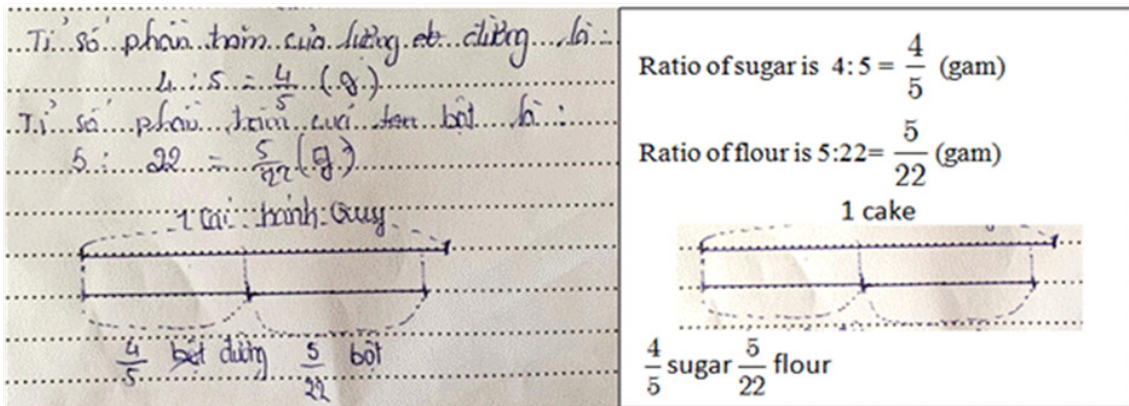 Tỉ số phần trăm của lượng đường là:
4 : 5 = 4/5 (g)
Tỉ số phần trăm của bột là:
5 : 22 = 5/22 (g)
1 cái bánh Quy
4/5 đường 5/22 bột
Ratio of sugar is 4:5 = 4/5 (gam)
Ratio of flour is 5:22= 5/22 (gam)
1 cake
4/5 sugar 5/22 flour